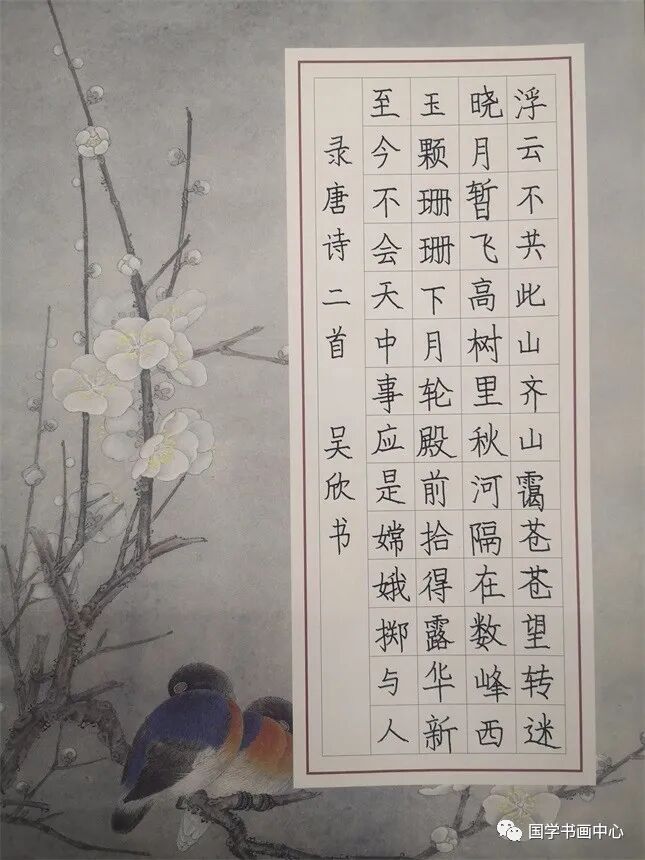 浮云不共此山齐山霭苍苍望转迷
晓月暂飞高树里秋河隔在数峰西
玉颗珊珊下月轮殿前拾得露华新
至今不会天中事应是嫦娥掷与人
录唐诗二首 吴欣书
国学书画中心